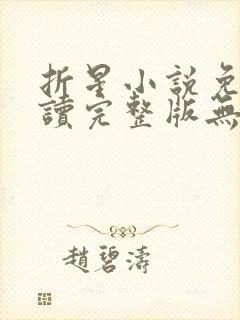 折星小説免
讀完整版無
趙碧濤